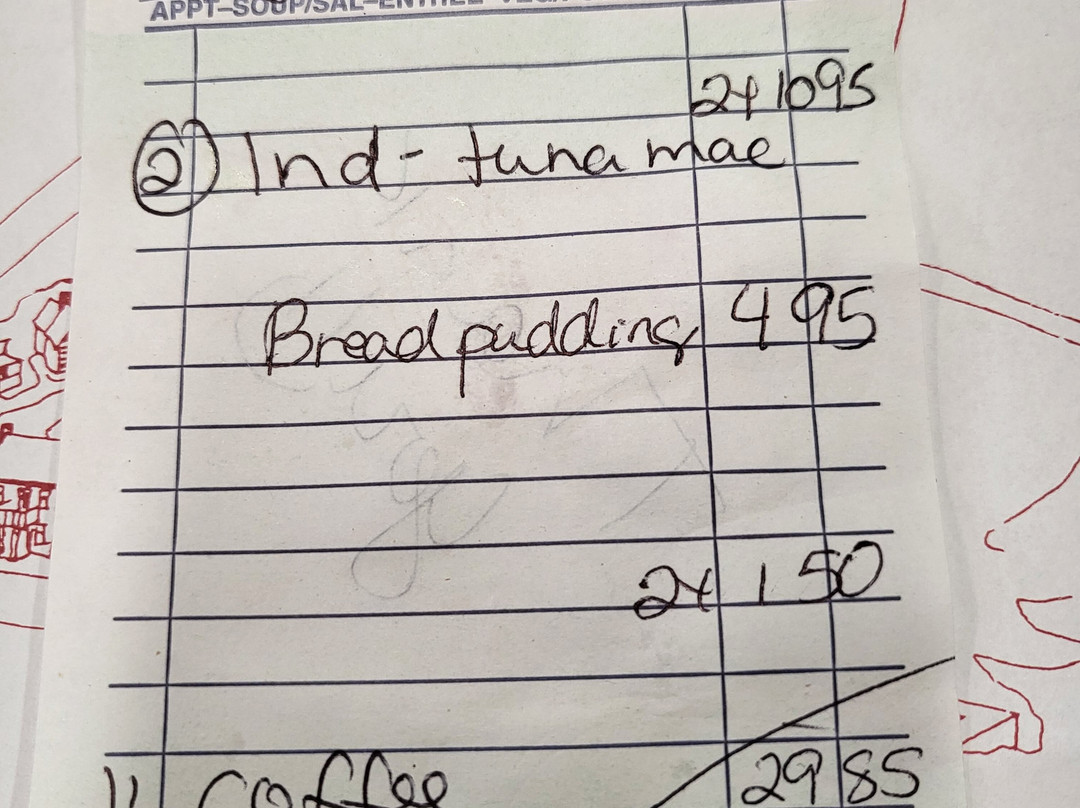 APPT-SOUP/SAL-ENTREE
2x 1095
② Ind - tuna mac
Bread pudding 4 95
2x 1 50
11 coffee 29 85